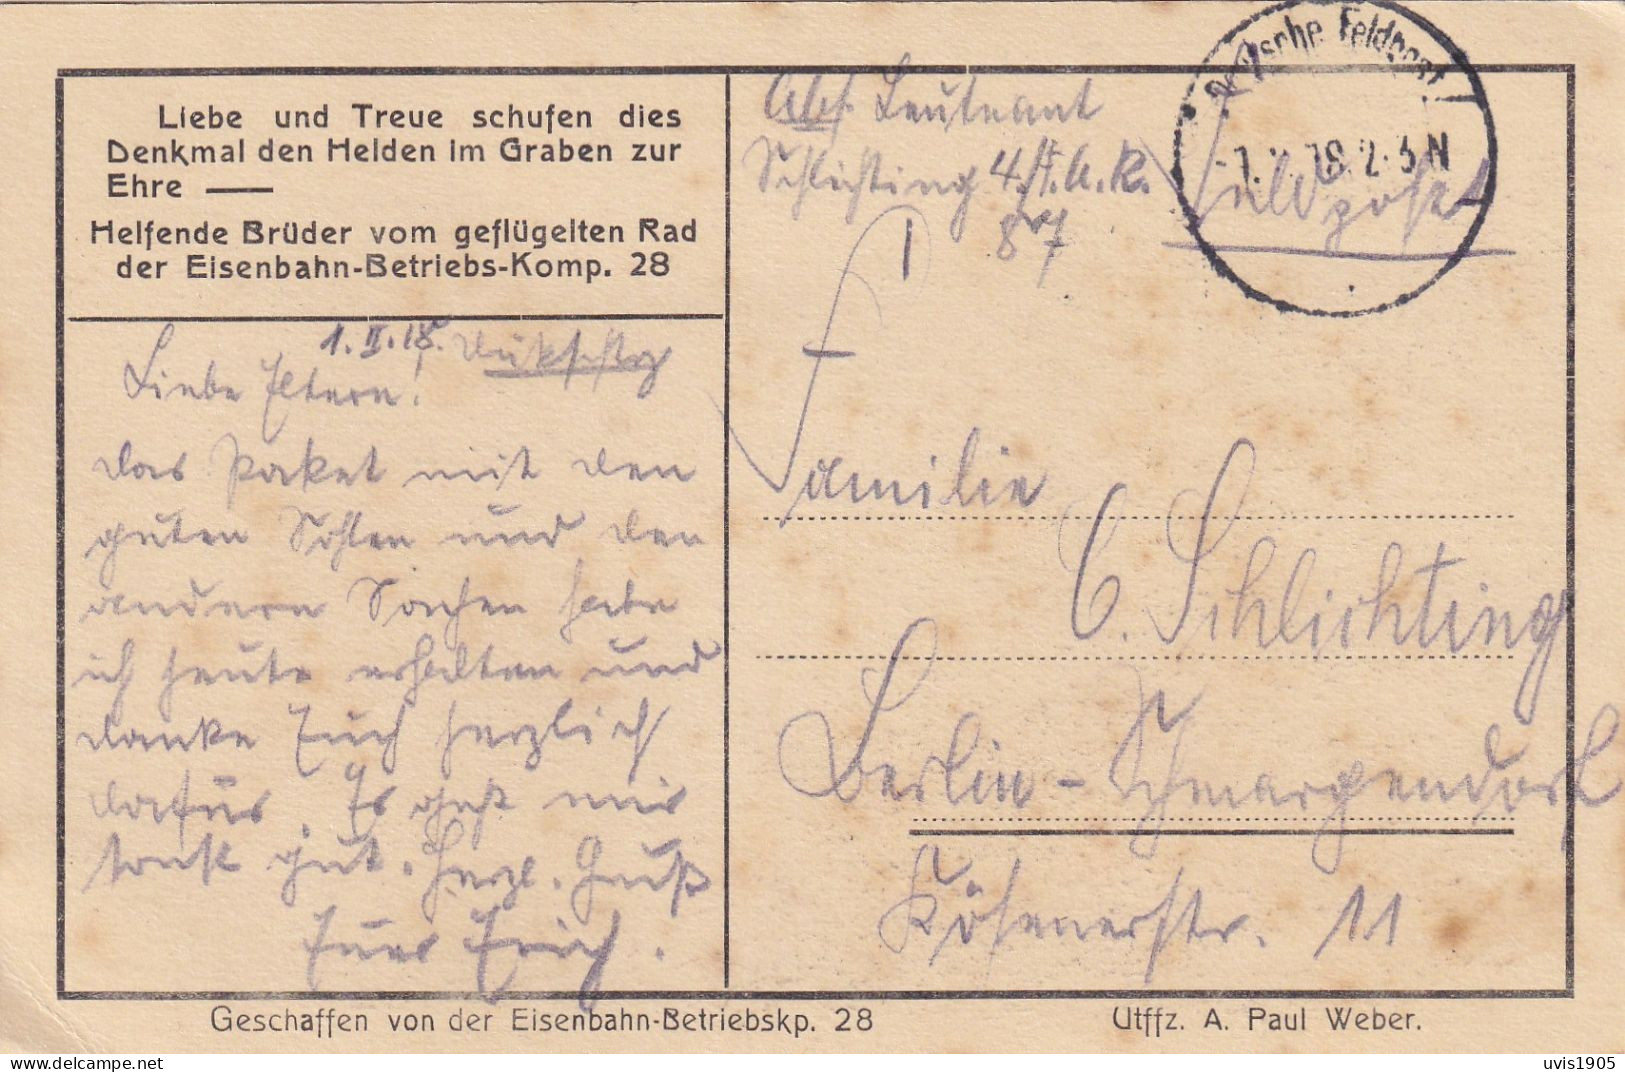 Liebe und Treue schufen dies
Denkmal den Helden im Graben zur
Ehre —
Helfende Brüder vom geflügelten Rad
der Eisenbahn-Betriebs-Komp. 28
1.II.18.
Liebe Eltern!
das Paket mit den
guten Sohlen und den
andern Sachen habe
ich heute erhalten und
danke Euch herzlich
dafür. Es geht mir
sonst gut. Herzl. Gruß
Euer Erich.
Abs. Leutnant
Schlichting 4./F.A.R.
87
Deutsche Feldpost
Feldpost
Familie
C. Schlichting
Berlin-Schmargendorf
Kösenerstr. 11
Geschaffen von der Eisenbahn-Betriebskp. 28
Utffz. A. Paul Weber.
uvis1905